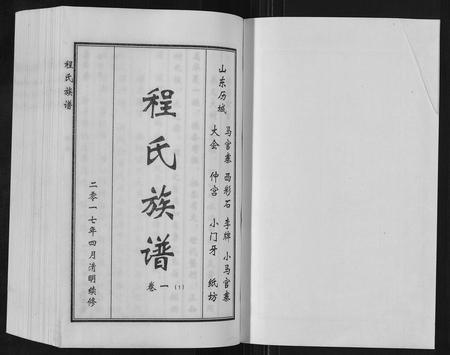 山东历城
马官寨 西彩石 李牌 小马官寨
大会 仲宫 小门牙 纸坊
程氏族谱
卷一（1）
二零一七年四月清明续修
程氏族谱